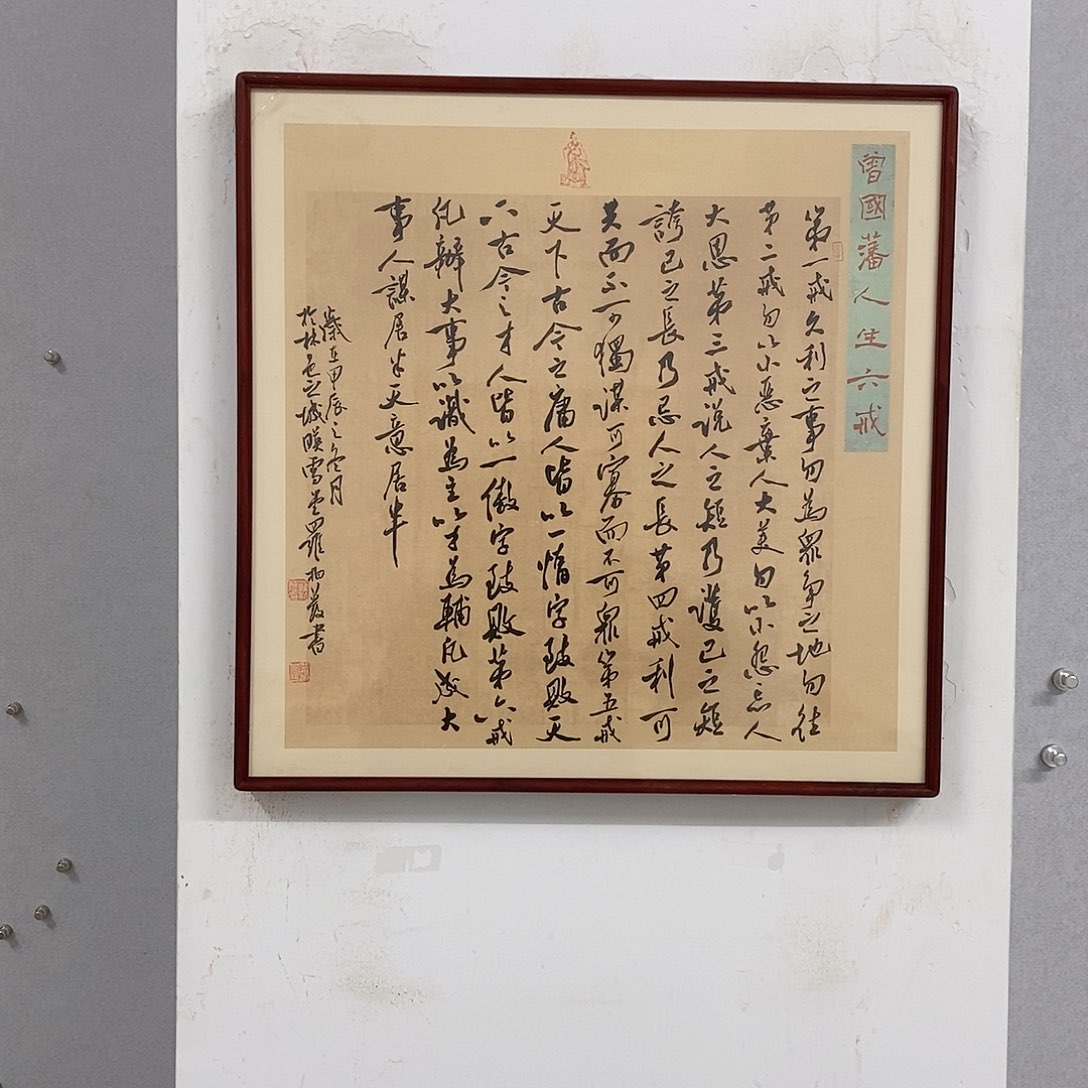 曾國藩人生六戒
第一戒久利之事勿為眾爭之地勿往
第二戒勿以小惡棄人大美勿以小怨忘人
大恩第三戒說人之短乃護己之短
誇己之長乃忌人之長第四戒利可
共而不可獨謀可寡而不可眾第五戒
天下古今之庸人皆以一惰字致敗天
下古今之才人皆以一傲字致敗第六戒
凡辦大事以識為主以才為輔凡成大
事人謀居半天意居半
歲在甲辰之冬月
於林邑之城暎雪堂羅書